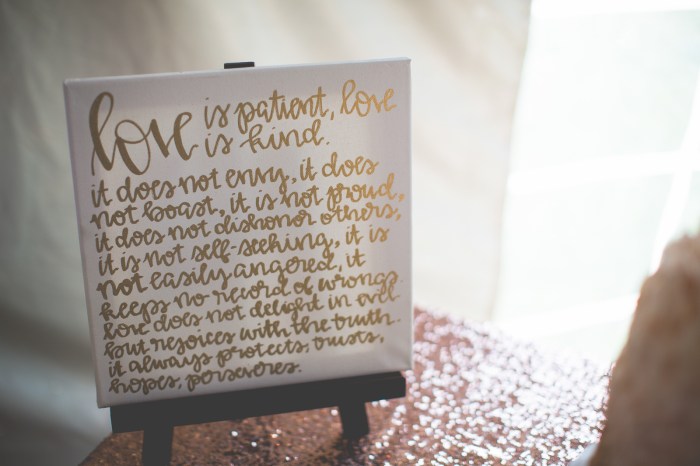 love is patient, love
is kind.
it does not envy, it does
not boast, it is not proud,
it does not dishonor others,
it is not self-seeking, it is
not easily angered, it
keeps no record of wrongs.
love does not delight in evil
but rejoices with the truth.
it always protects, trusts,
hopes, perseveres.